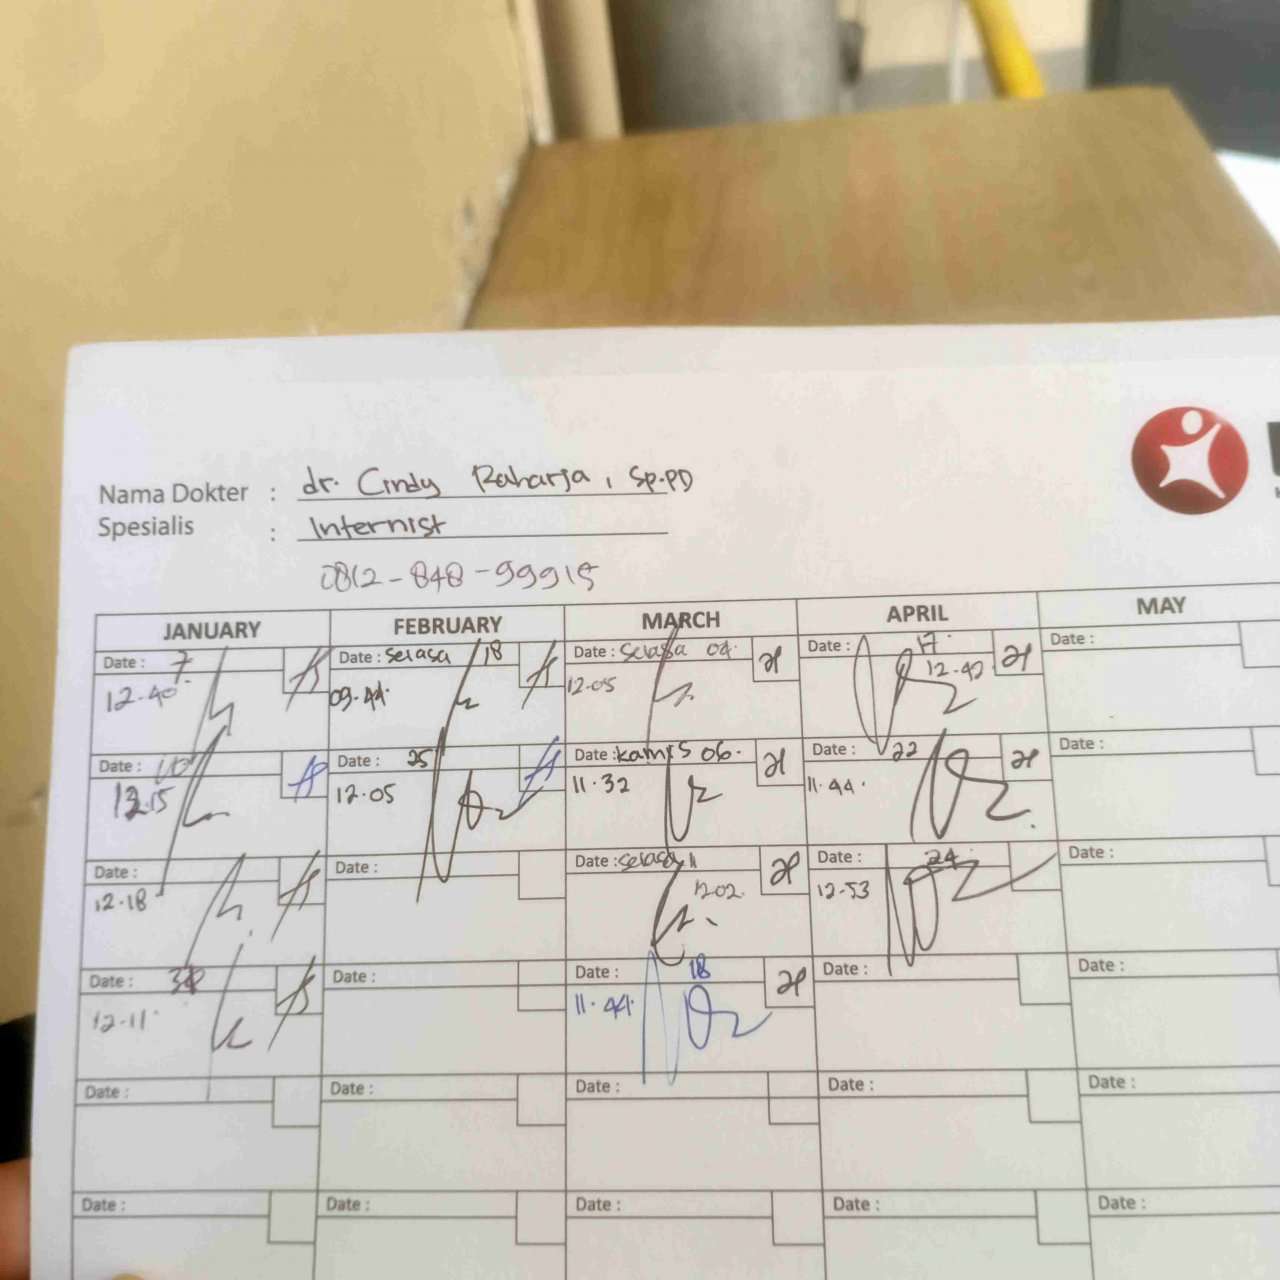 Nama Dokter : dr. Cindy Raharja, Sp.PD
Spesialis : Internist
0812-848-99915
JANUARY FEBRUARY MARCH APRIL MAY
Date : 7 Date : Selasa 18 Date : Selasa 04. Date : 17 Date :
12.40 09.44. 12.05 12.42
Date : 10 Date : 25 Date : kamis 06. Date : 22 Date :
12.15 12.05 11.32 11.44.
Date : Date : Date : Selasa 11 Date : 24 Date :
12.18 12.02. 12.53
Date : Date : Date : 18 Date : Date :
12.11. 11.44.
Date : Date : Date : Date : Date :
Date : Date : Date : Date : Date :